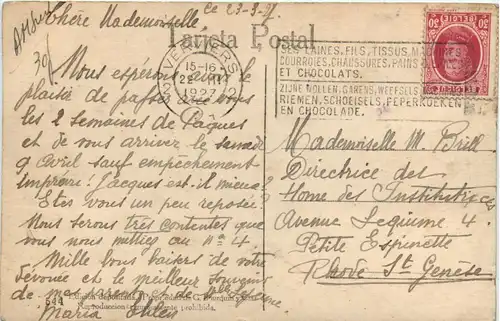 Chère Mademoiselle
Ce 23-3-27
Tarjeta Postal
VERVIERS
15-16
22-III
1927
2 2
SES LAINES, FILS, TISSUS, MACHINES
COURROIES, CHAUSSURES, PAINS
ET CHOCOLATS.
ZIJNE WOLLEN, GARENS, WEEFSELS
RIEMEN, SCHOEISELS, PEPERKOEKEN
EN CHOCOLADE.
BELGIE
30
Nous espérons avoir le
plaisir de passer avec vous
les 2 semaines de Pâques
et de vous arriver le samedi
9 Avril sauf empêchement
imprévu! Jacques est-il mieux?
Etes vous un peu reposée?
Nous serons très contentes que
vous nous mettiez au No 4
Mille bons baisers de votre
dévouée et le meilleur souvenir
de mes parents et de Melle
Maria
Mademoiselle M. Brill
Directrice des
Home des Institutrices
Avenue Lequime 4.
Petite Espinette
Rhode St Genèse
544
prohibida.